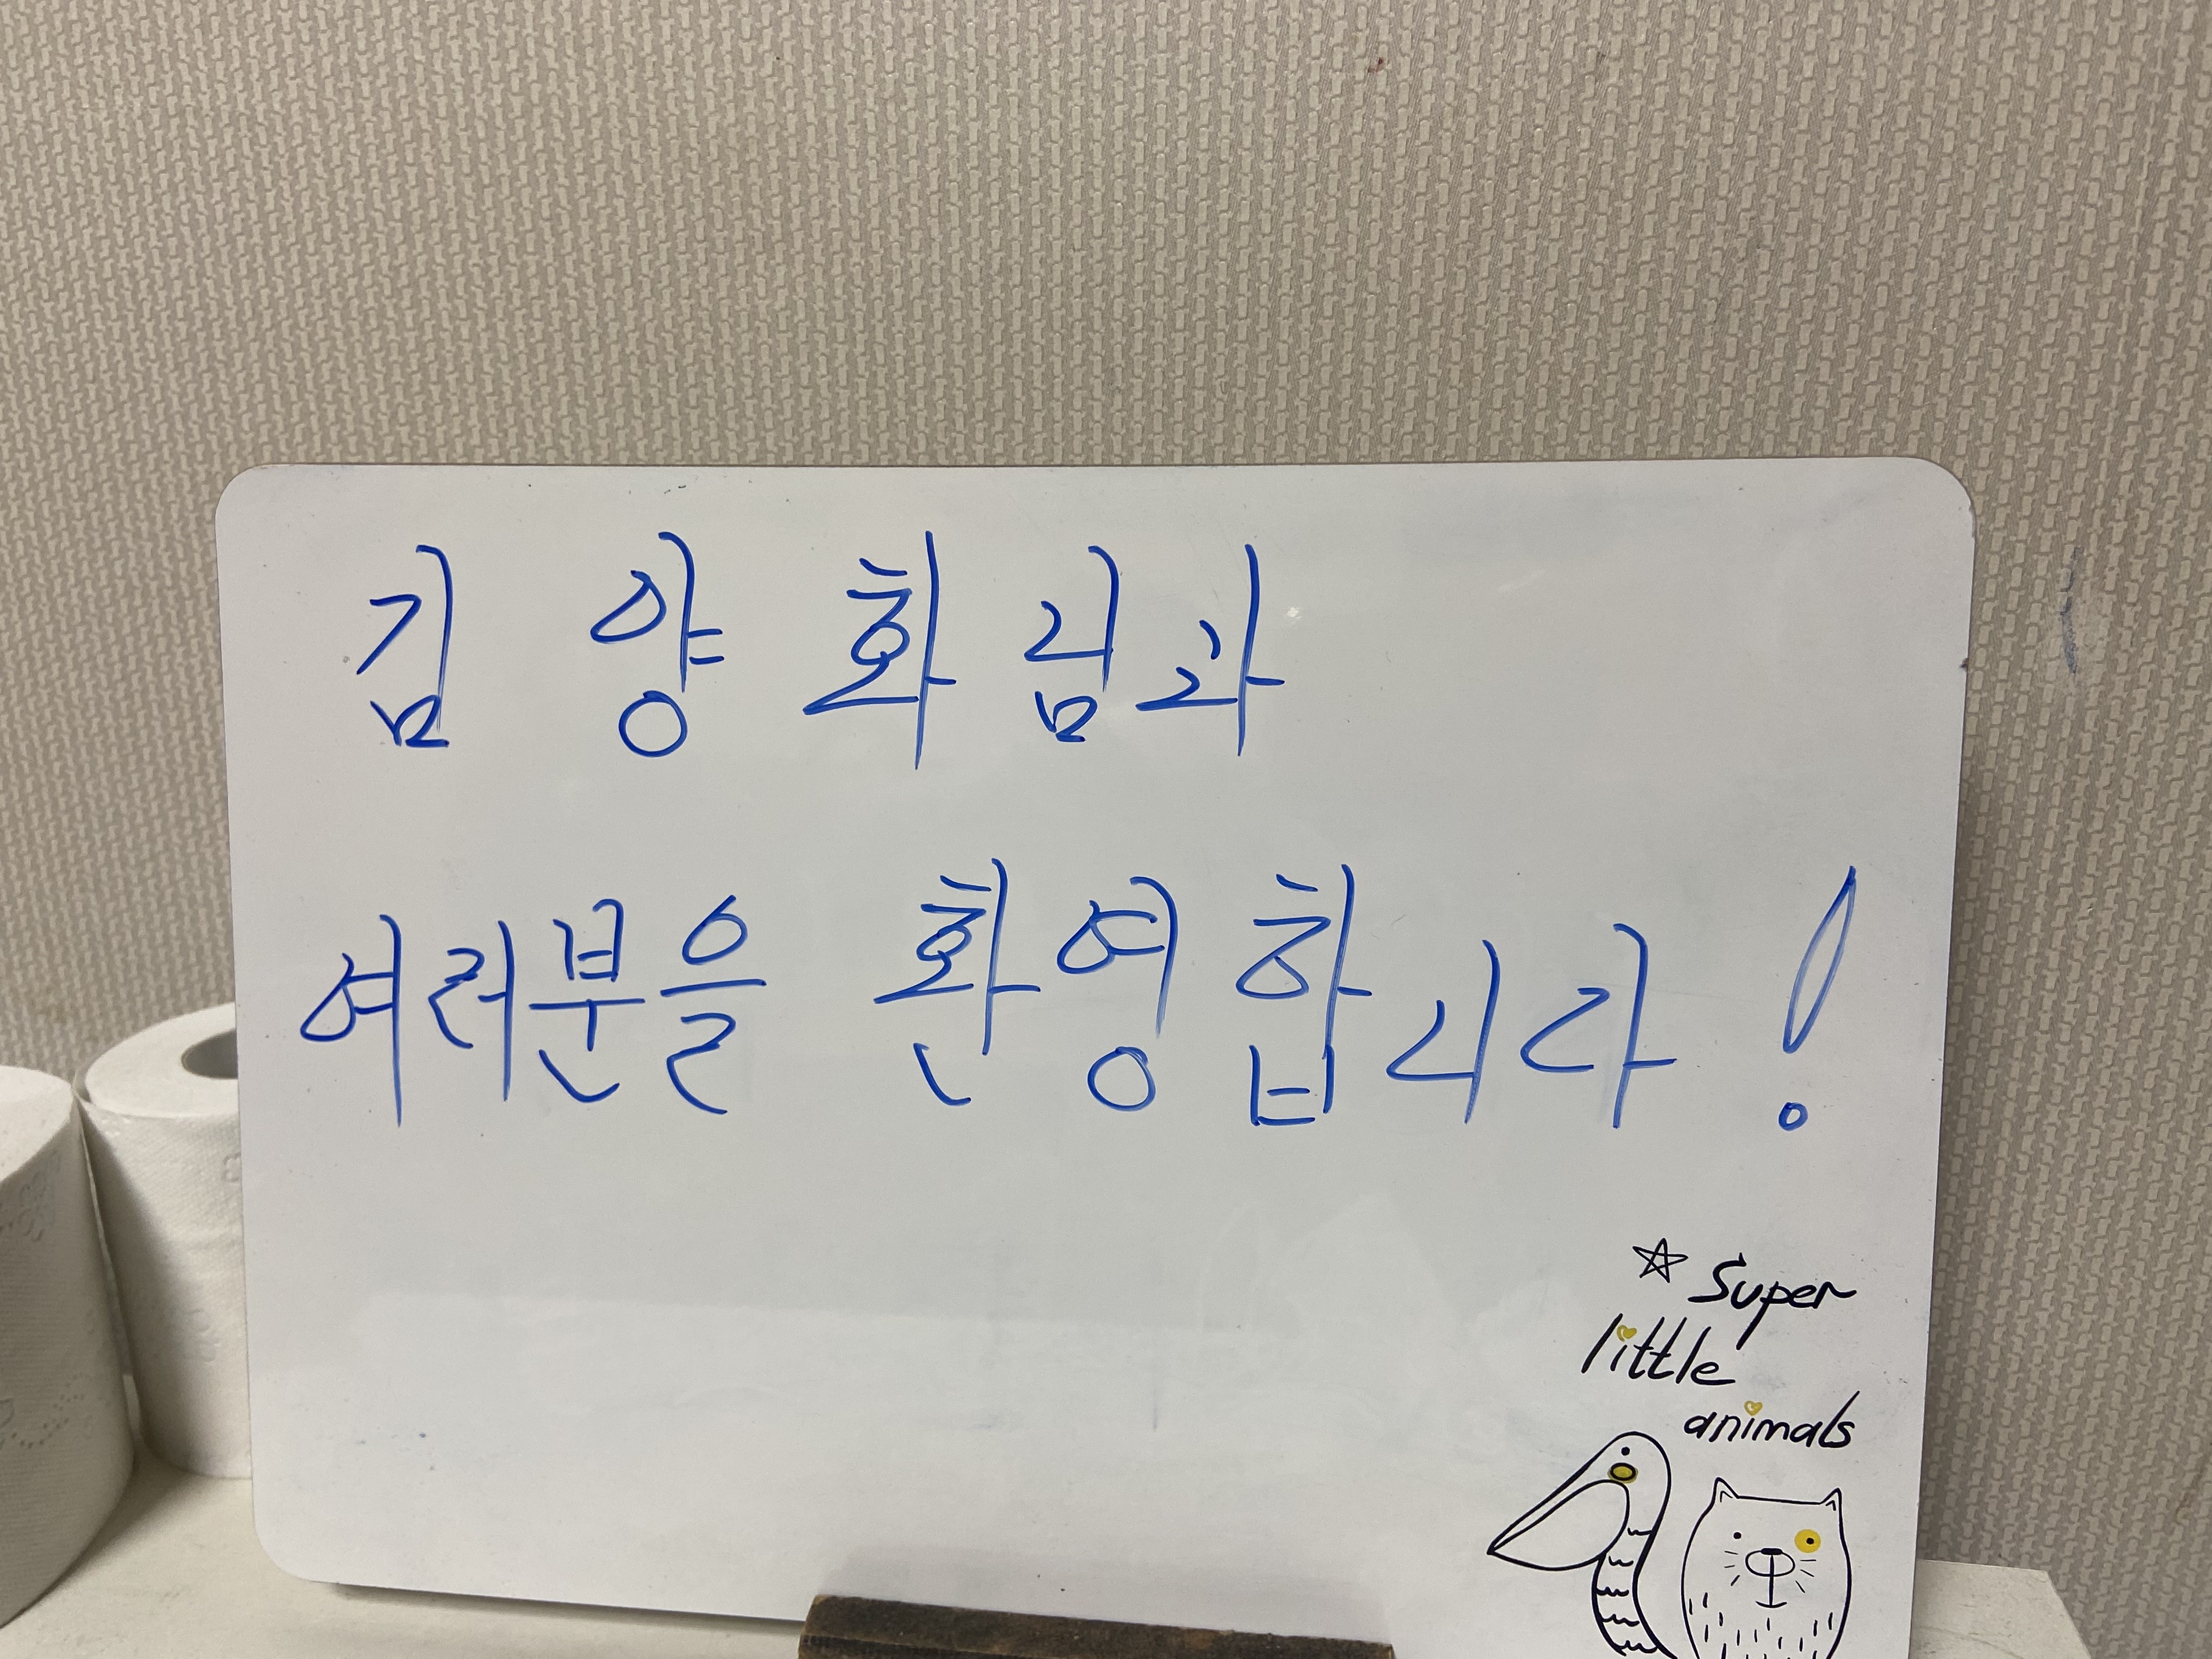 김 양 화 님과
여러분을 환영합니다!
☆ Super
little
animals